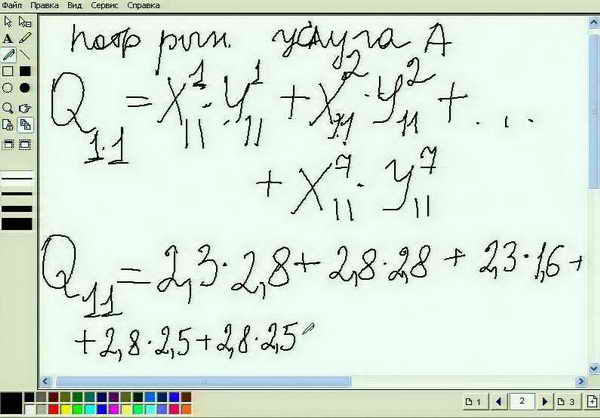 Файл Правка Вид Сервис Справка
потр рын. услуга А
Q₁.₁ = X¹₁₁ · Y¹₁₁ + X²₁₁ · Y²₁₁ + ...
+ X⁷₁₁ · Y⁷₁₁
Q₁₁ = 2,3 · 2,8 + 2,8 · 2,8 + 2,3 · 1,6 +
+ 2,8 · 2,5 + 2,8 · 2,5
1 2 3